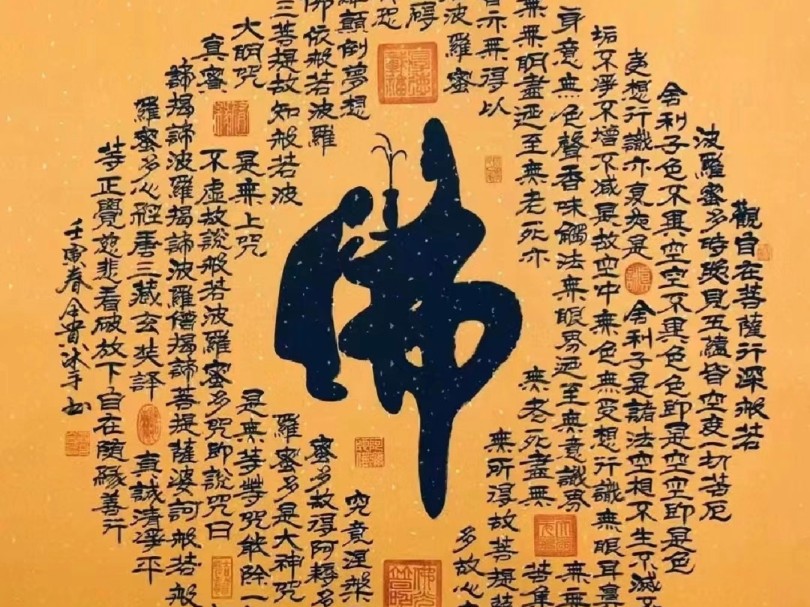 觀自在菩薩行深般若
波羅蜜多時照見五蘊皆空度一切苦厄
舍利子色不異空空不異色色即是空空即是色
受想行識亦复如是 舍利子是諸法空相不生不滅不
垢不淨不增不減是故空中無色無受想行識無眼耳鼻
身意無色聲香味觸法無眼界迺至無意識界 無無
無無明盡迺至無老死亦 無老死盡無 苦集
亦無得以 無所得故菩提薩
波羅蜜 多故心
礙
恐
佛
顛倒夢想 究竟涅槃
佛依般若波羅 蜜多故得阿耨多
三菩提故知般若波 羅蜜多是大神咒
大明咒 是無上咒 是無等等咒能除一
真實 不虛故說般若波羅蜜多咒即說咒曰
諦揭諦波羅揭諦波羅僧揭諦菩提薩婆訶般若般
羅蜜多心經唐三藏玄奘譯 真誠清淨平
等正覺慈悲看破放下自在隨緣善行
壬寅春金貴沐手書